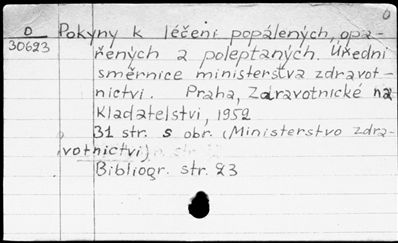 O
D
30623
Pokyny k léčení popálených, opa-
řených a poleptaných. Úřední
směrnice ministerstva zdravot-
nictví. Praha, Zdravotnické na
kladatelství, 1952
31 str. s obr. (Ministerstvo zdra-
votnictví)
Bibliogr. str. 23